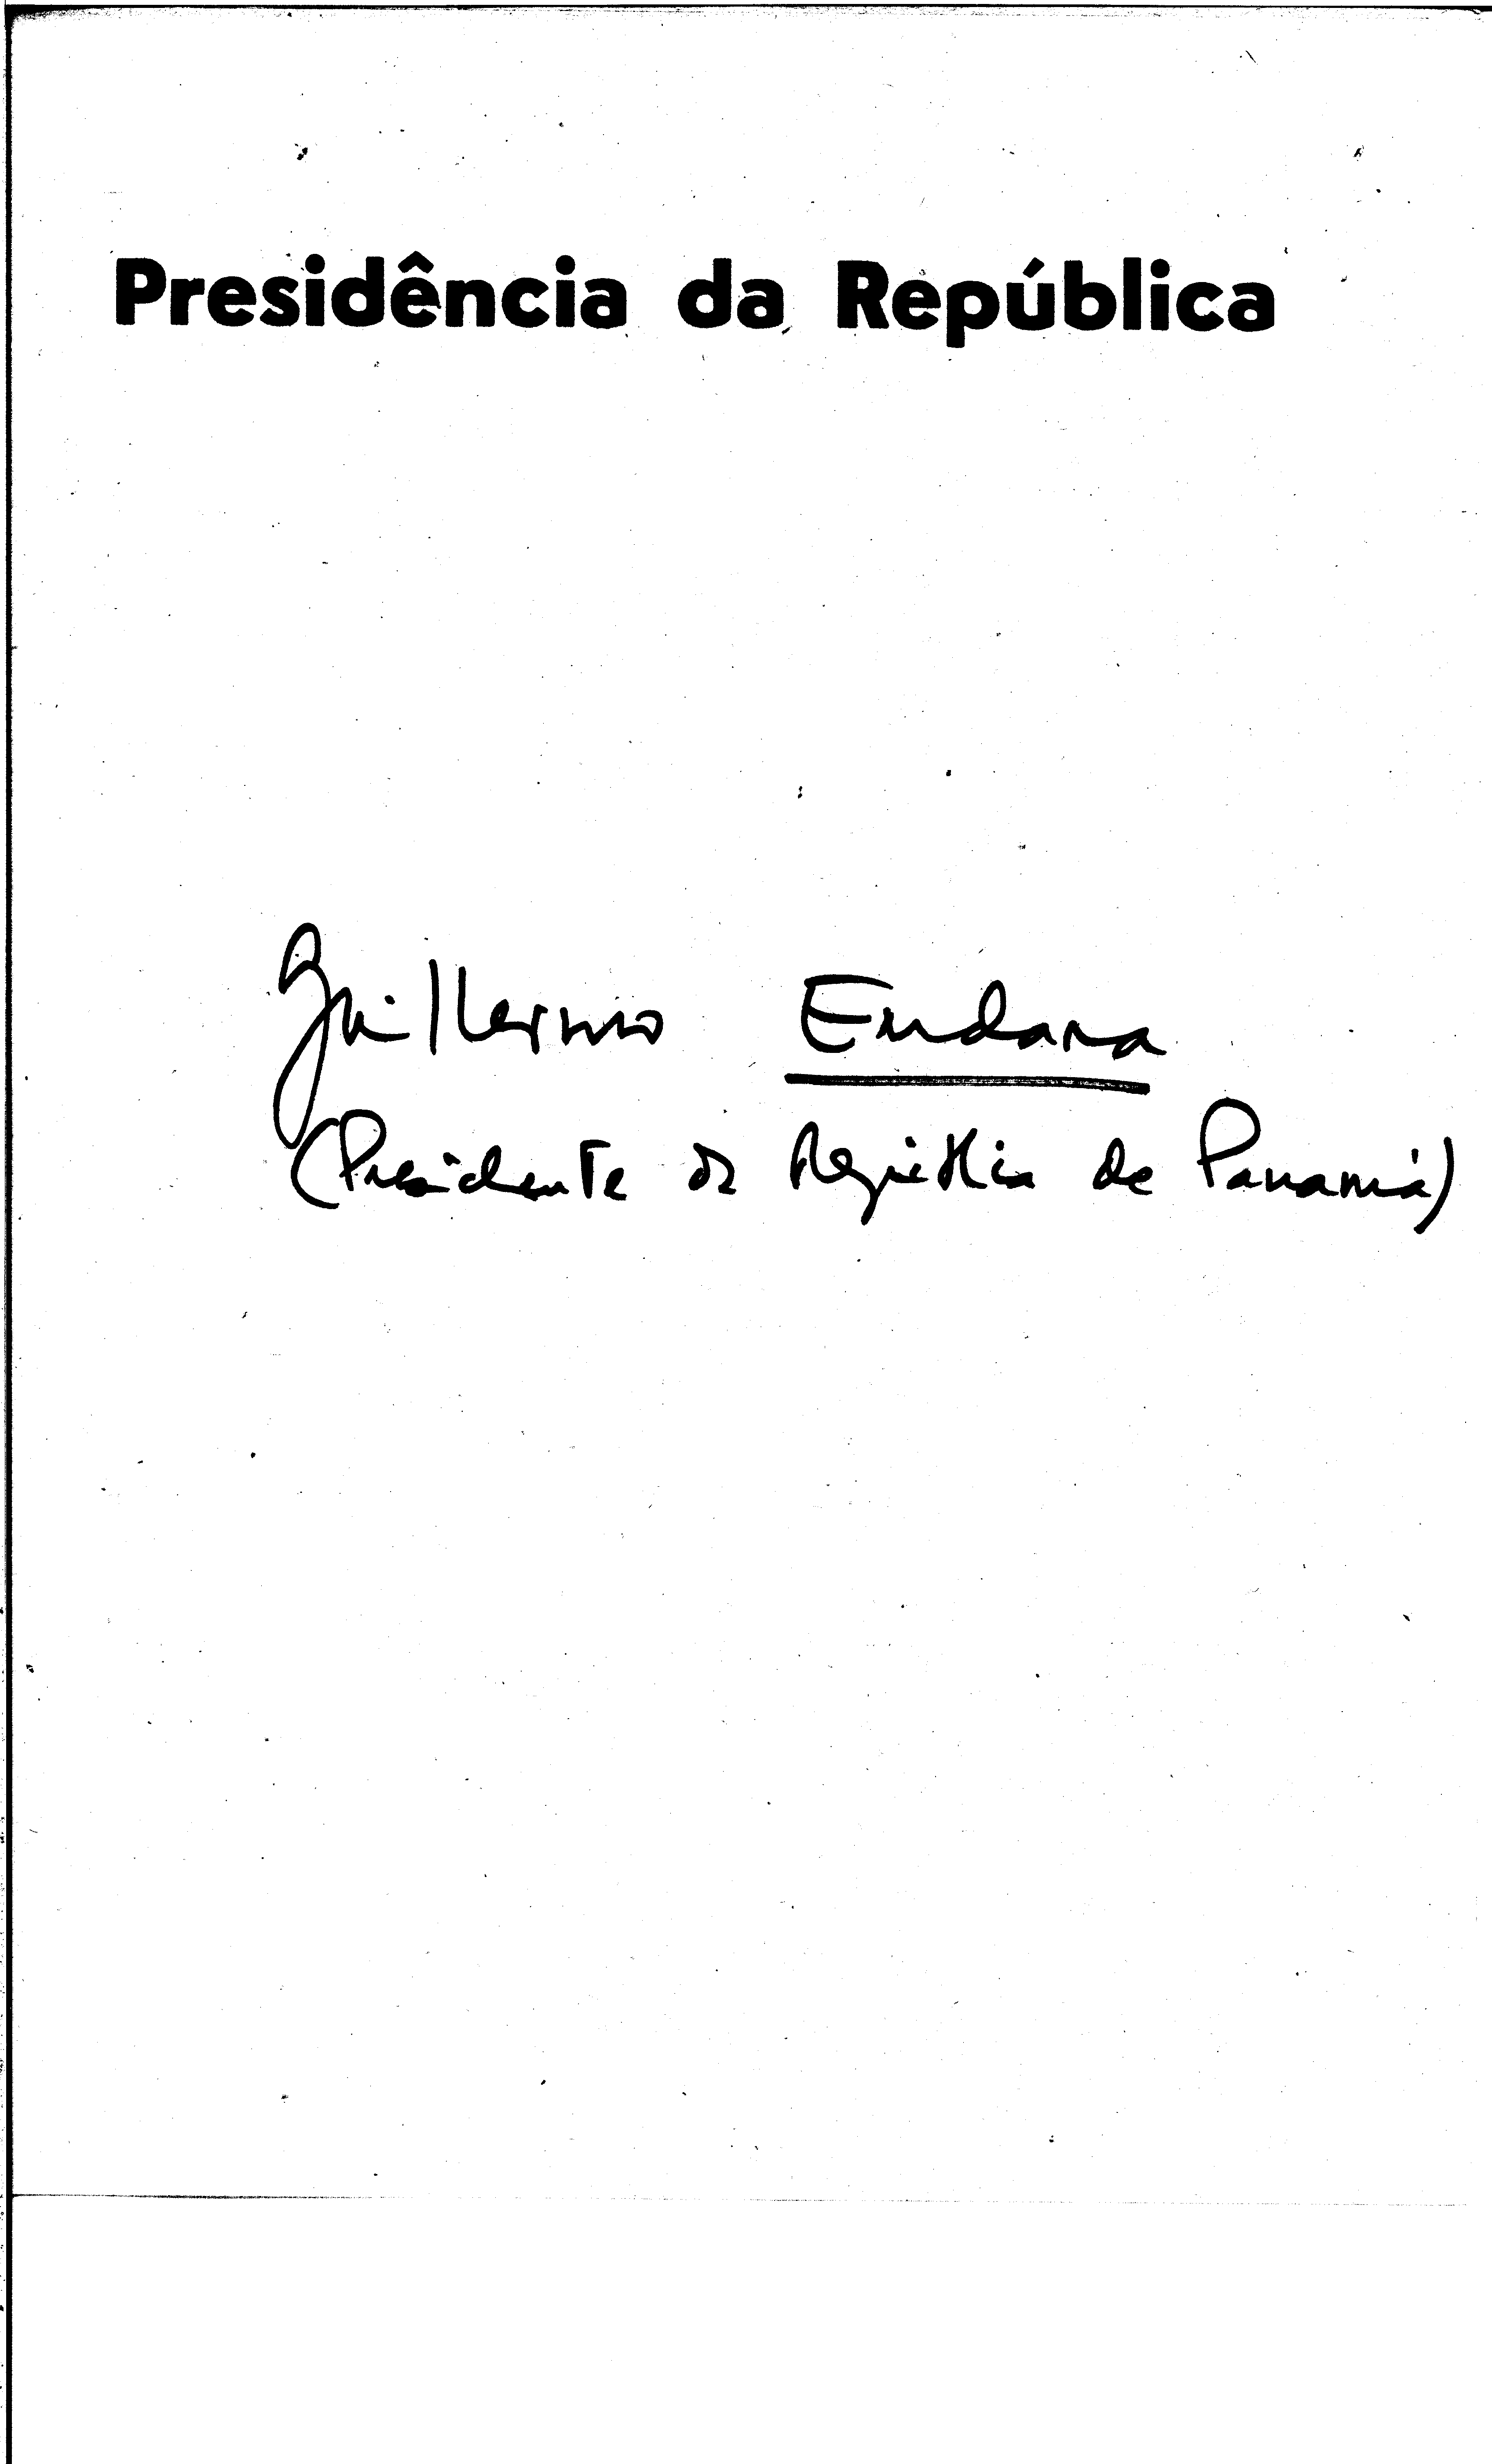 Presidência da República
Guillermo Endara
(Presidente da República de Panamá)